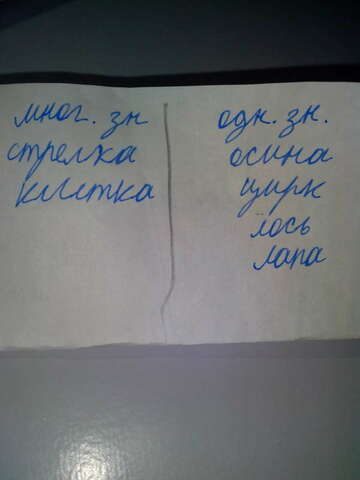 мног. зн
стрелка
клетка
одн. зн.
осина
цирк
лось
лапа